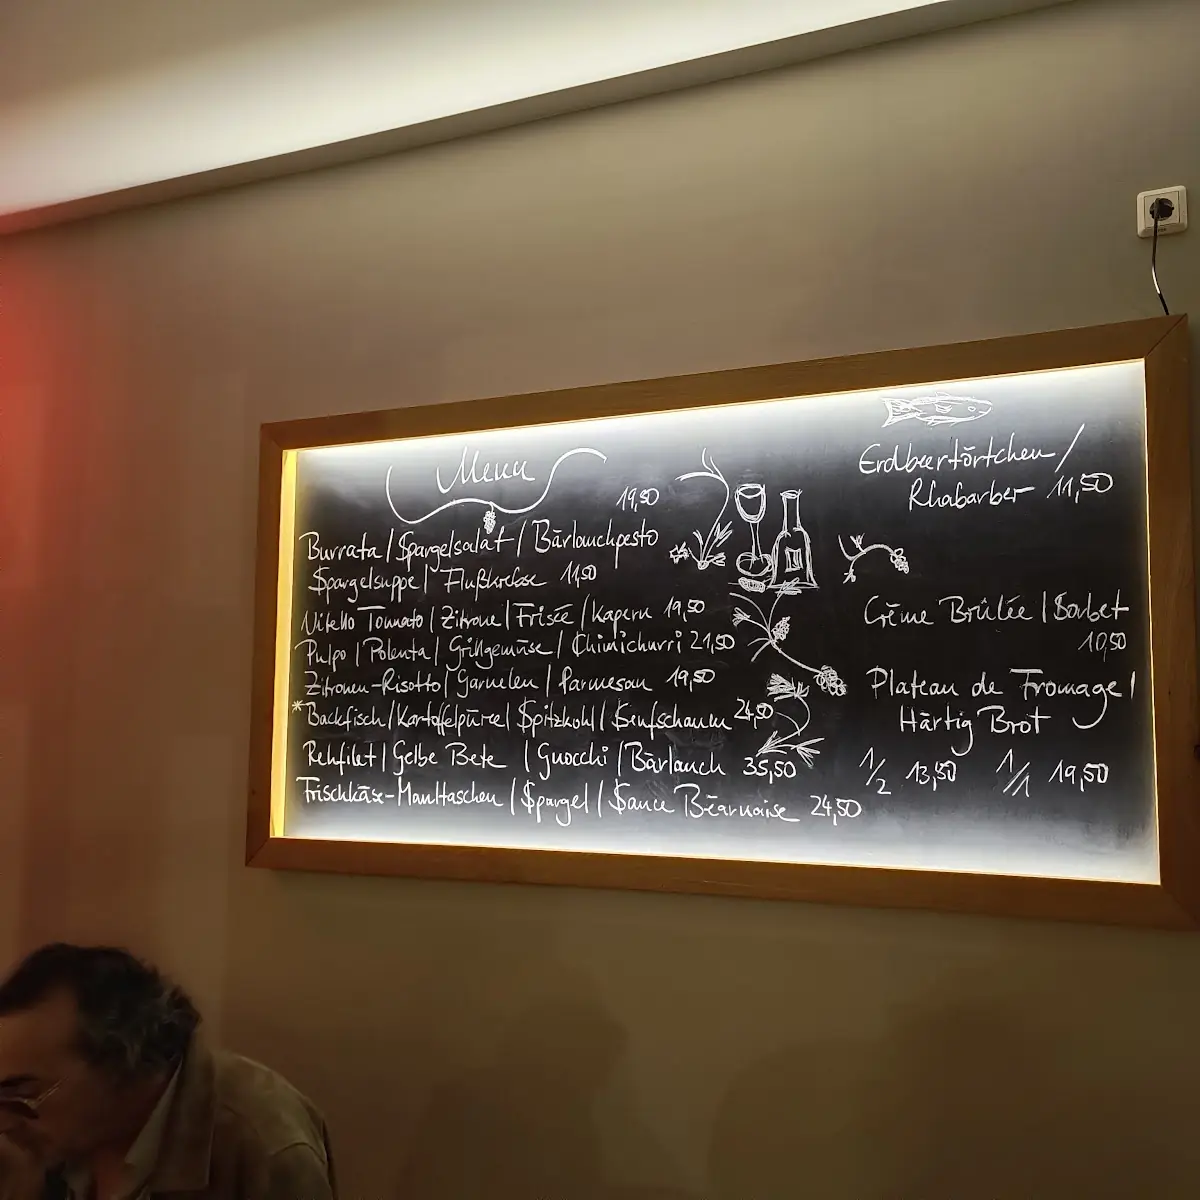 Menu
19,50
Burrata / Spargelsalat / Bärlauchpesto
Spargelsuppe / Flußkrebse 11,50
Vitello Tonnato / Zitrone / Frisée / Kapern 19,50
Pulpo / Polenta / Grillgemüse / Chimichurri 21,50
Zitronen-Risotto / Garnelen / Parmesan 19,50
*Backfisch / Kartoffelpüree / Spitzkohl / Senfschaum 24,50
Rehfilet / Gelbe Bete / Gnocchi / Bärlauch 35,50
Frischkäse-Maultaschen / Spargel / Sauce Béarnaise 24,50
Erdbeertörtchen /
Rhabarber 11,50
Crème Brûlée / Sorbet
10,50
Plateau de Fromage /
Härtig Brot
1/2 13,50 1/1 19,50